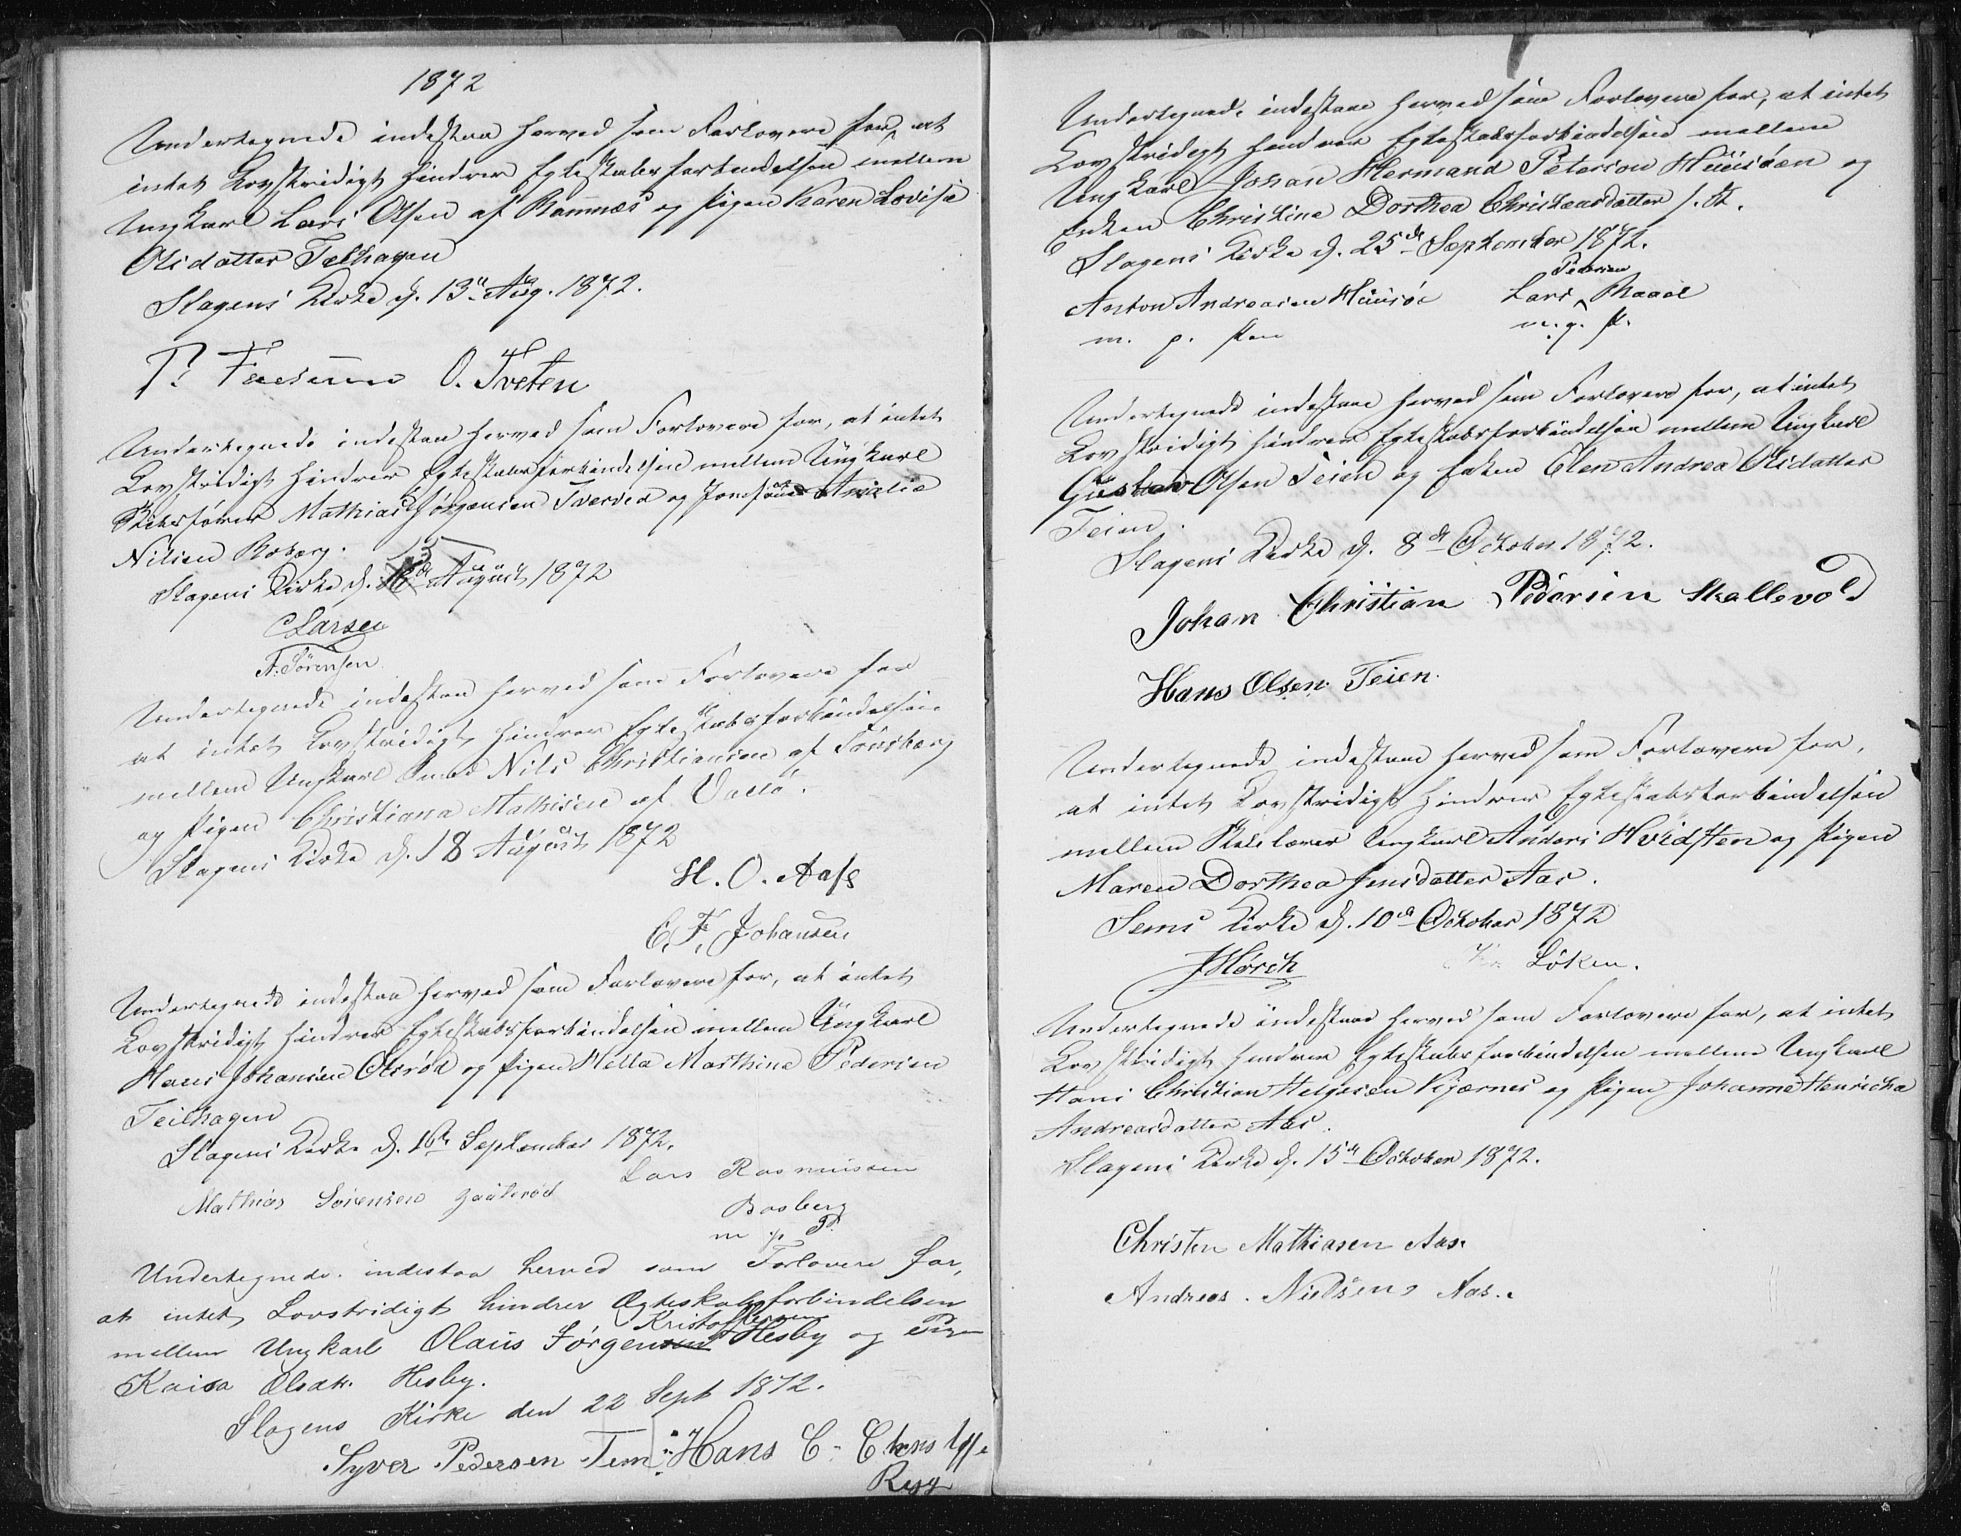 1872
Undertegnede indestaa herved som Forlovere for, at
intet Lovstridigt hindrer Egteskabsforbindelsen mellem
Ungkarl Lars Olsen af Ramnæs og Pigen Karen Lovise
Olsdatter Telhagen
Slagens Kirke d. 13de Aug. 1872.
O. Tveten
Undertegnede indestaa herved som Forlovere for, at intet
Lovstridigt hindrer Egteskabsforbindelsen mellem Ungkarl
Skibsfører Mathias Jørgensen Tverved og Jomfrue Amalie
Nilsen Roberg.
Slagens Kirke d. 15 August 1872
C Larsen
A. Sørensen
Undertegnede indestaa herved som Forlovere for
at intet Lovstridigt hindrer Egteskabsforbindelsen
mellem Ungkarl Nils Christiansen af Tønsberg
og Pigen Christiana Mathisen af Valø.
Slagens Kirke d. 18 August 1872
H. O. Aass
C. F. Johansen
Undertegnede indestaa herved som Forlovere for, at intet
Lovstridigt hindrer Egteskabsforbindelsen mellem Ungkarl
Hans Johansen Olsrød og Pigen Hella Marthine Pedersen
Teilhagen
Slagens Kirke d. 16de September 1872.
Mathias Sørensen Lars Rasmussen
Basberg
m p P.
Undertegnede indestaa herved som Forlovere for,
at intet Lovstridigt hindrer Ægteskabsforbindelsen
Kristoffersen
mellem Ungkarl Olaus Jørgensen Hesby og Pigen
Kaisa Olsdtr. Hesby.
Slagens Kirke den 22 Sept 1872.
Syver Pedersen Tem Hans C.
Undertegnede indestaae herved som Forlovere for, at intet
Lovstridigt hindrer Egteskabsforbindelsen mellem
Ungkarl Johan Hermand Peterson Huusøen og
Enken Christine Dorthea Christensdatter s. St.
Slagens Kirke d. 25de September 1872.
Pedersen
Anton Andreasen Huusøe Lars Raael
m. p. Pen m. p. P.
Undertegnede indestaae herved som Forlovere for, at intet
Lovstridigt hindrer Egteskabsforbindelsen mellem Ungkarl
Gustav Olsen Teien og Enken Elen Andrea Olsdatter
Teien.
Slagens Kirke d. 8de October 1872.
Johan Christian Pedersen Skallevold
Hans Olsen Teien.
Undertegnede indestaae herved som Forlovere for,
at intet Lovstridigt hindrer Egteskabsforbindelsen
mellem Skolelærer Ungkarl Anders Hvidsten og Pigen
Maren Dorthea Jensdatter Aas.
Sems Kirke d. 10de October 1872
J Hørch Løken.
Undertegnede indestaae herved som Forlovere for, at intet
Lovstridigt hindrer Egteskabsforbindelsen mellem Ungkarl
Hans Christian Helgesen Kjærnes og Pigen Johanne Henricha
Andreasdatter Aas.
Slagens Kirke d. 15de October 1872.
Christen Mathiasen Aas.
Andreas. Nielsens Aas.